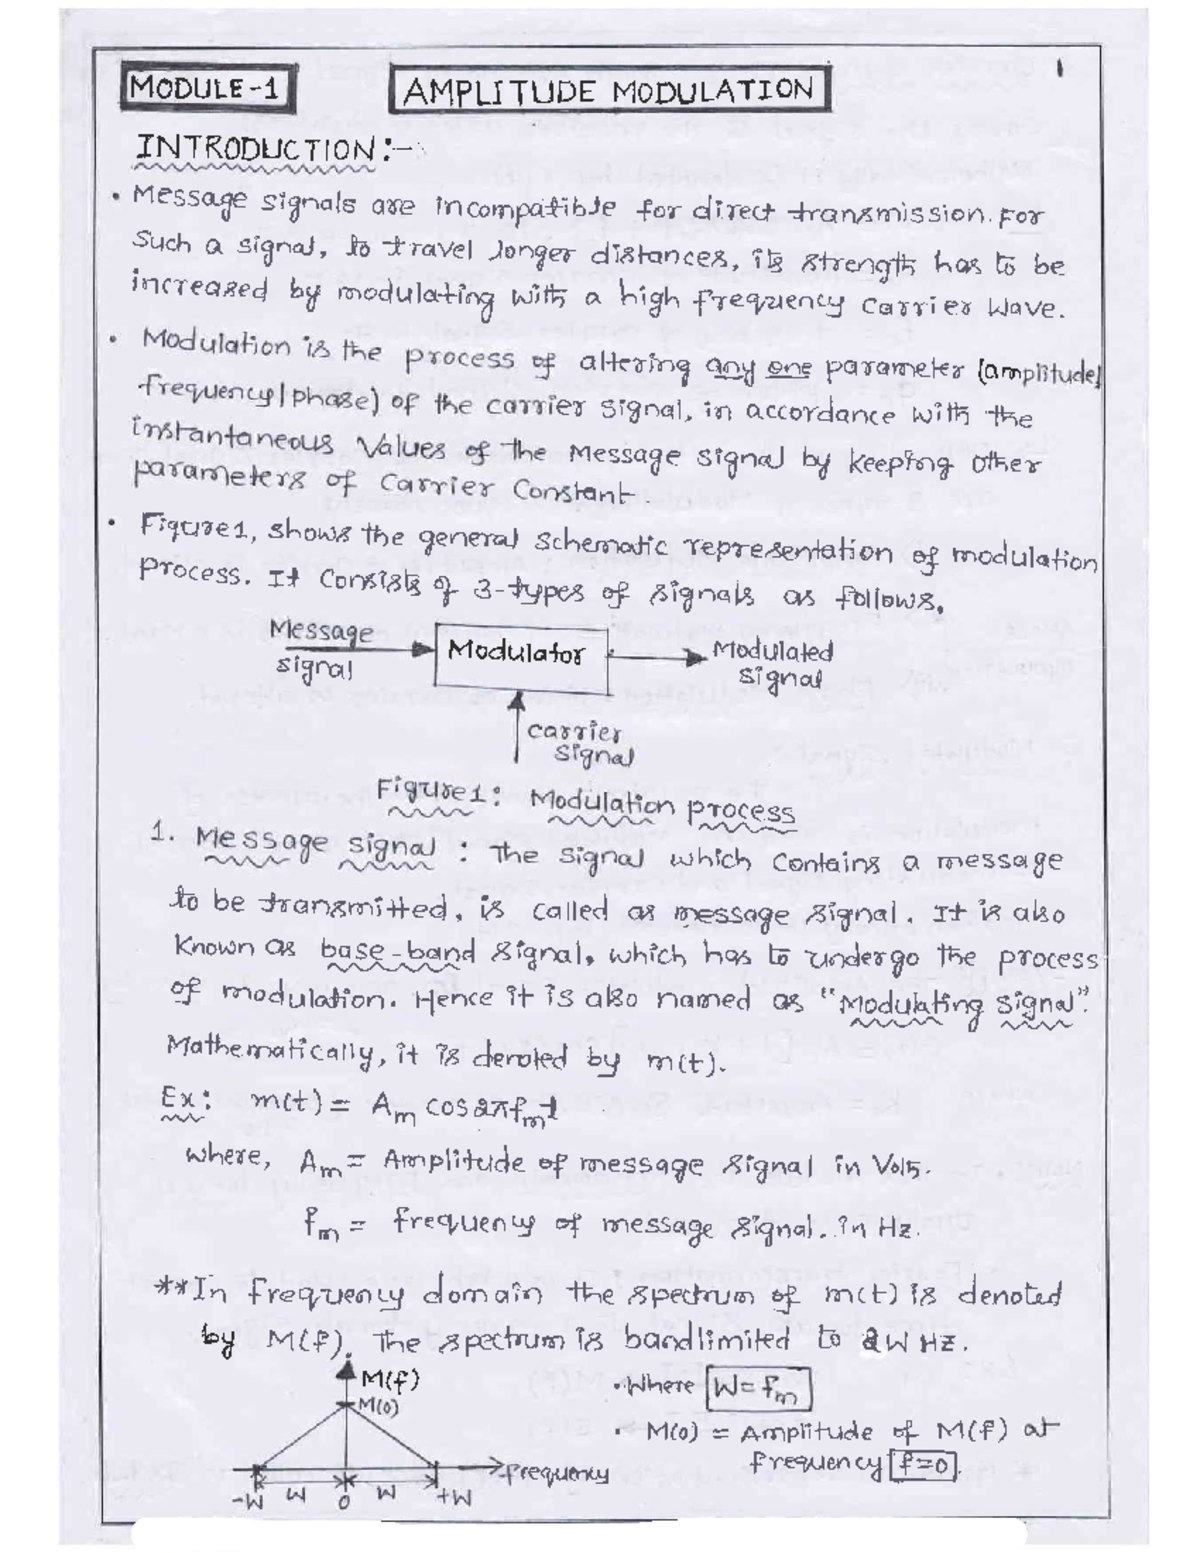 1
MODULE-1 AMPLITUDE MODULATION
INTRODUCTION:-
• Message signals are incompatible for direct transmission. For
such a signal, to travel longer distances, its strength has to be
increased by modulating with a high frequency carrier wave.
• Modulation is the process of altering any one parameter (amplitude/
frequency/phase) of the carrier signal, in accordance with the
instantaneous values of the message signal by keeping other
parameters of carrier constant
• Figure1, shows the general schematic representation of modulation
process. It consists of 3-types of signals as follows,
Message
signal
Modulator
Modulated
signal
carrier
signal
Figure1: Modulation process
1. Message signal : The signal which contains a message
to be transmitted, is called as message signal. It is also
known as base-band signal, which has to undergo the process
of modulation. Hence it is also named as "Modulating signal".
Mathematically, it is denoted by m(t).
Ex: m(t) = Am cos2πfmt
where, Am = Amplitude of message signal in Volts.
fm = frequency of message signal. in Hz.
**In frequency domain the spectrum of m(t) is denoted
by M(f). The spectrum is bandlimited to 2W Hz.
M(f)
M(0)
frequency
-W W 0 W +W
• Where W = fm
• M(0) = Amplitude of M(f) at
frequency f=0.